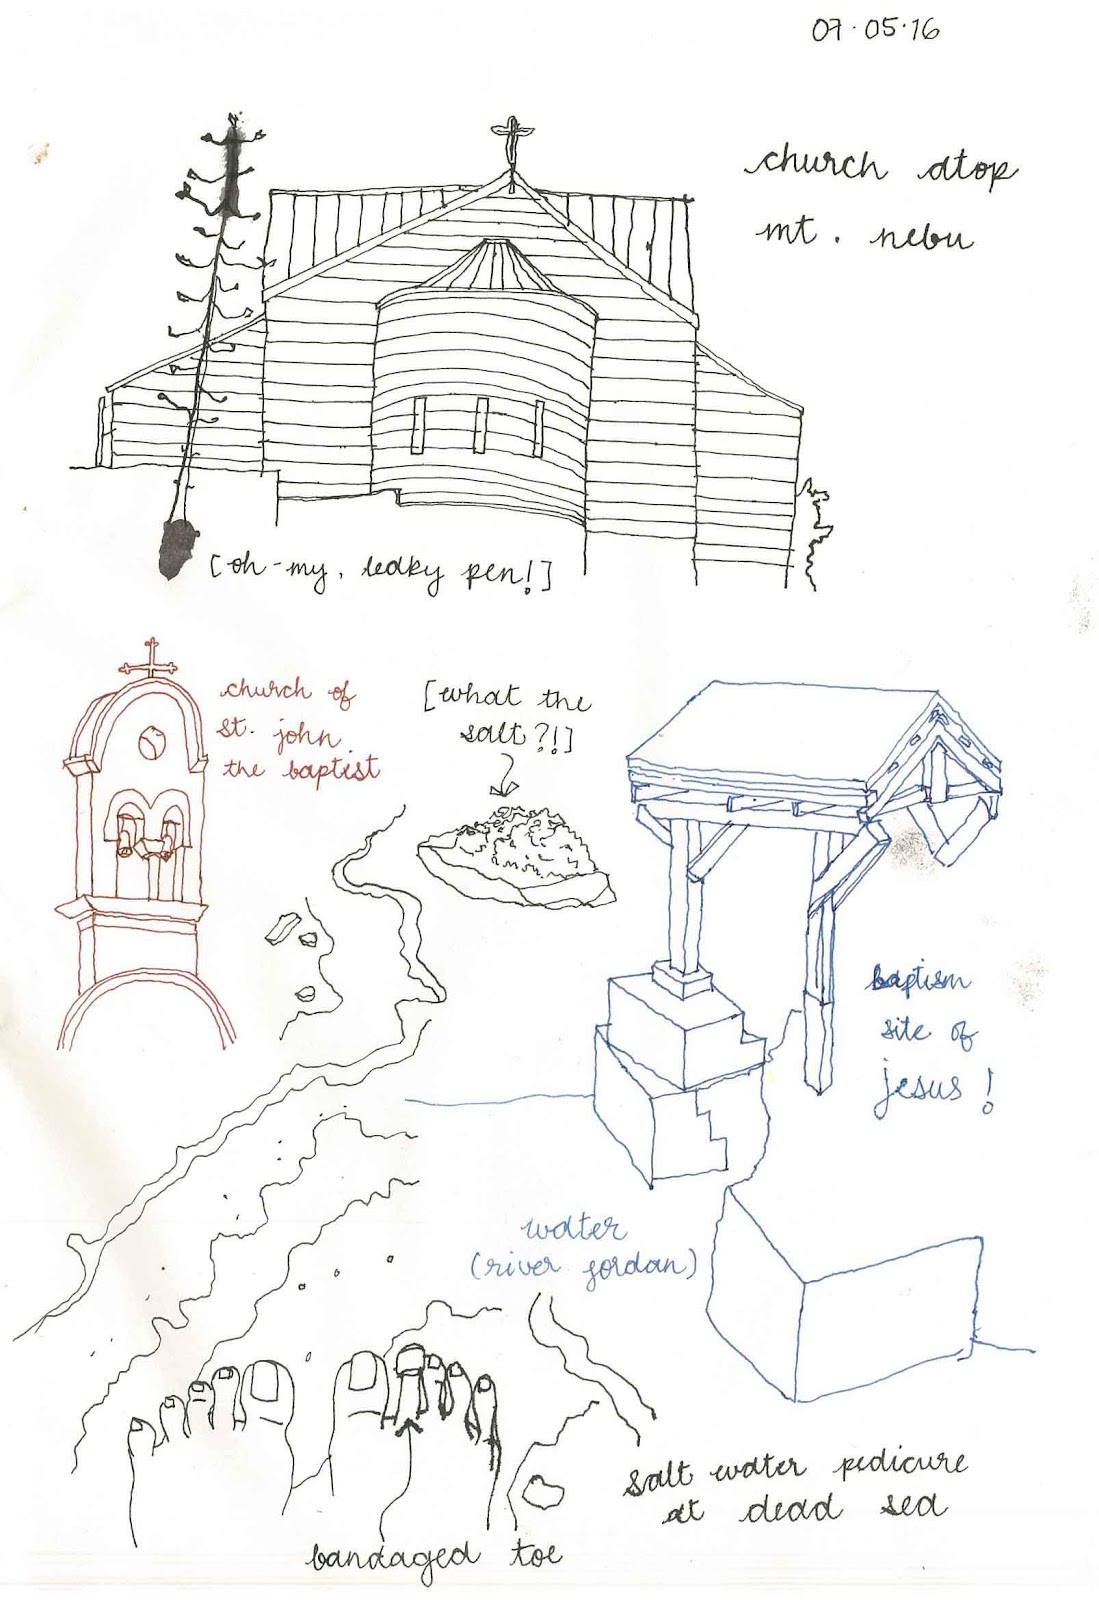 07.05.16
church atop
mt. nebu
[oh-my, leaky pen!]
church of
st. john
the baptist
[what the
salt?!]
baptism
site of
jesus!
water
(river jordan)
salt water pedicure
at dead sea
bandaged toe